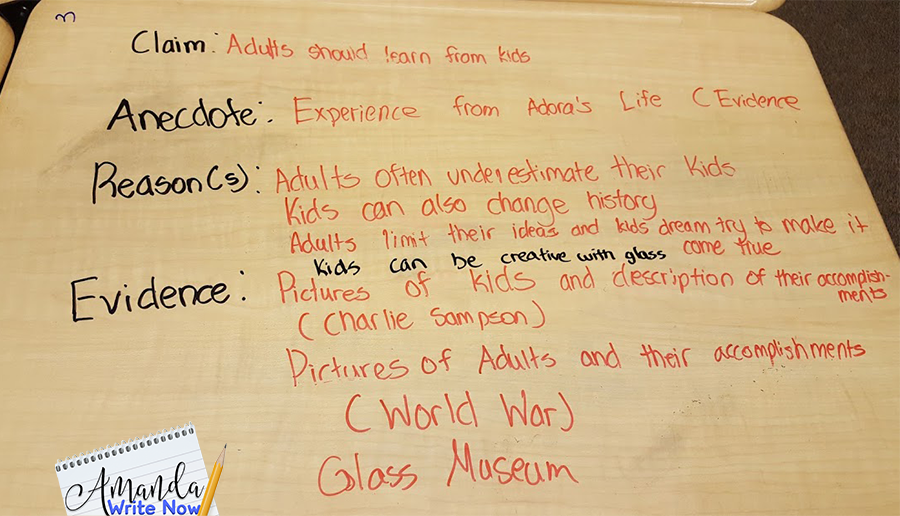 3
Claim: Adults should learn from kids
Anecdote: Experience from Adora's Life (Evidence
Reason(s): Adults often underestimate their Kids
Kids can also change history
Adults limit their ideas and kids dream try to make it
come true
Kids can be creative with glass
Evidence: Pictures of kids and description of their accomplish-
ments
(Charlie Sampson)
Pictures of Adults and their accomplishments
(World War)
Glass Museum
Amanda
Write Now